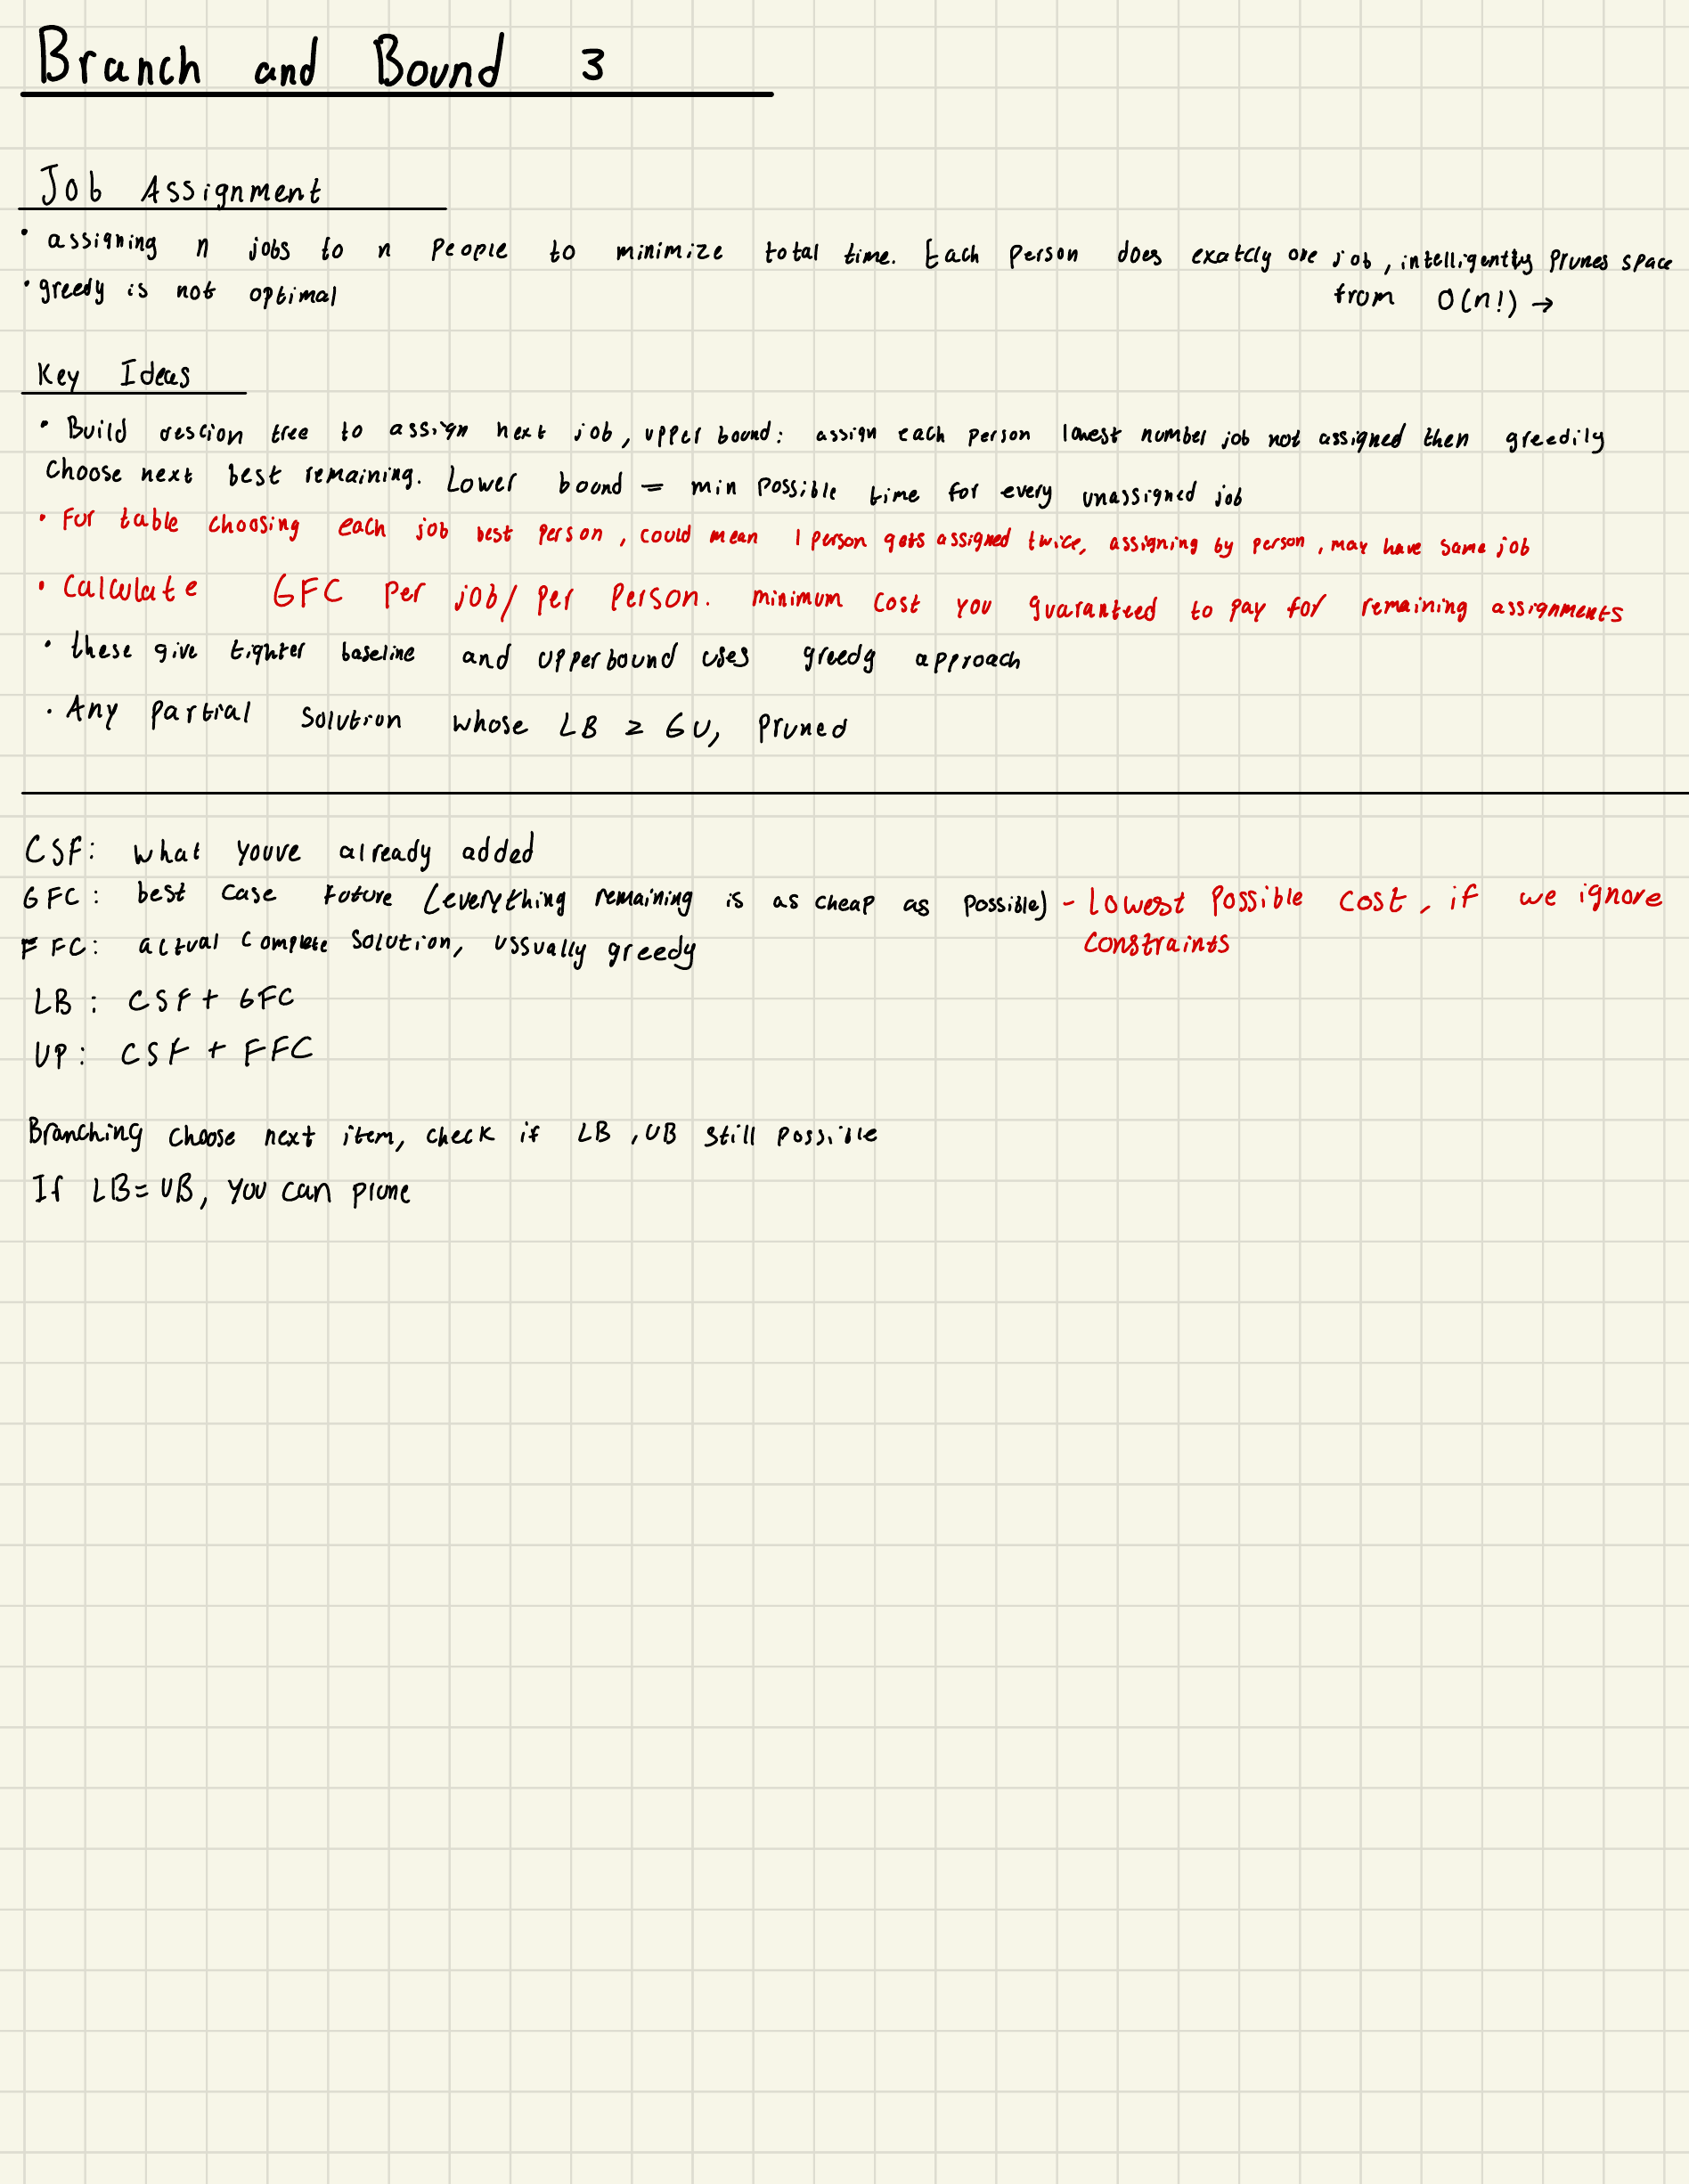 Branch and Bound 3
Job Assignment
• assigning n jobs to n people to minimize total time. Each person does exatcly one job, intelligently prunes space
from O(n!) →
• greedy is not optimal
Key Ideas
• Build tree to assign next job, upper bound: assign each person lowest number job not assigned then greedily
choose next best remaining. Lower bound = min possible time for every unassigned job
• For table choosing each job best person, could mean 1 person gets assigned twice, assigning by person, may have same job
• Calculate GFC per job/ per person. minimum cost you guaranteed to pay for remaining assignments
• these give tighter baseline and upperbound uses greedy approach
• Any partial solution whose LB ≥ GU, pruned
CSF: what youve already added
GFC: best case future (everything remaining is as cheap as possible) - lowest possible cost, if we ignore
constraints
FFC: actual complete solution, ussually greedy
LB: CSF + GFC
UP: CSF + FFC
Branching choose next item, check if LB, UB still possible
If LB = UB, you can prune